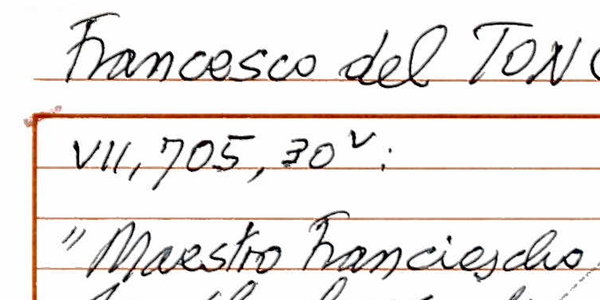 Francesco del TON
VII, 705, 30v:
"Maestro Franciescho